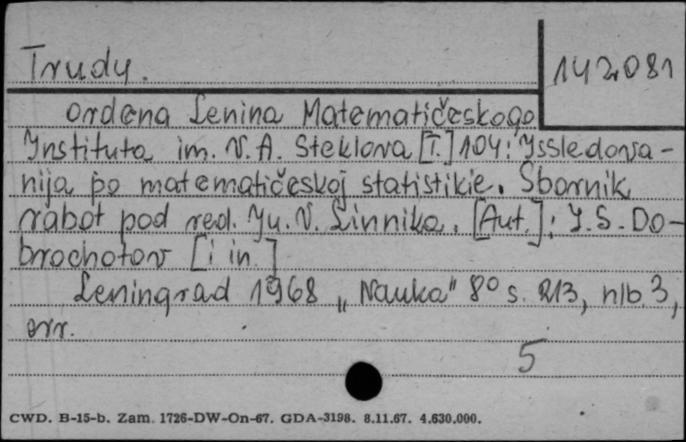 Trudy.
142081
Ordena Lenina Matematičeskogo
Instituta im. V. A. Steklova [T.] 104: Issledova-
nija po matematičeskoj statistikie. Sbornik
rabot pod red. Ju. V. Linnika. [Aut.]: I. S. Do-
brochotov [i in.]
Leningrad 1968 „Nauka" 8° s. 213, nlb. 3,
err.
5
CWD. B-15-b. Zam. 1726-DW-On-67. GDA-3198. 8.11.67. 4.630.000.